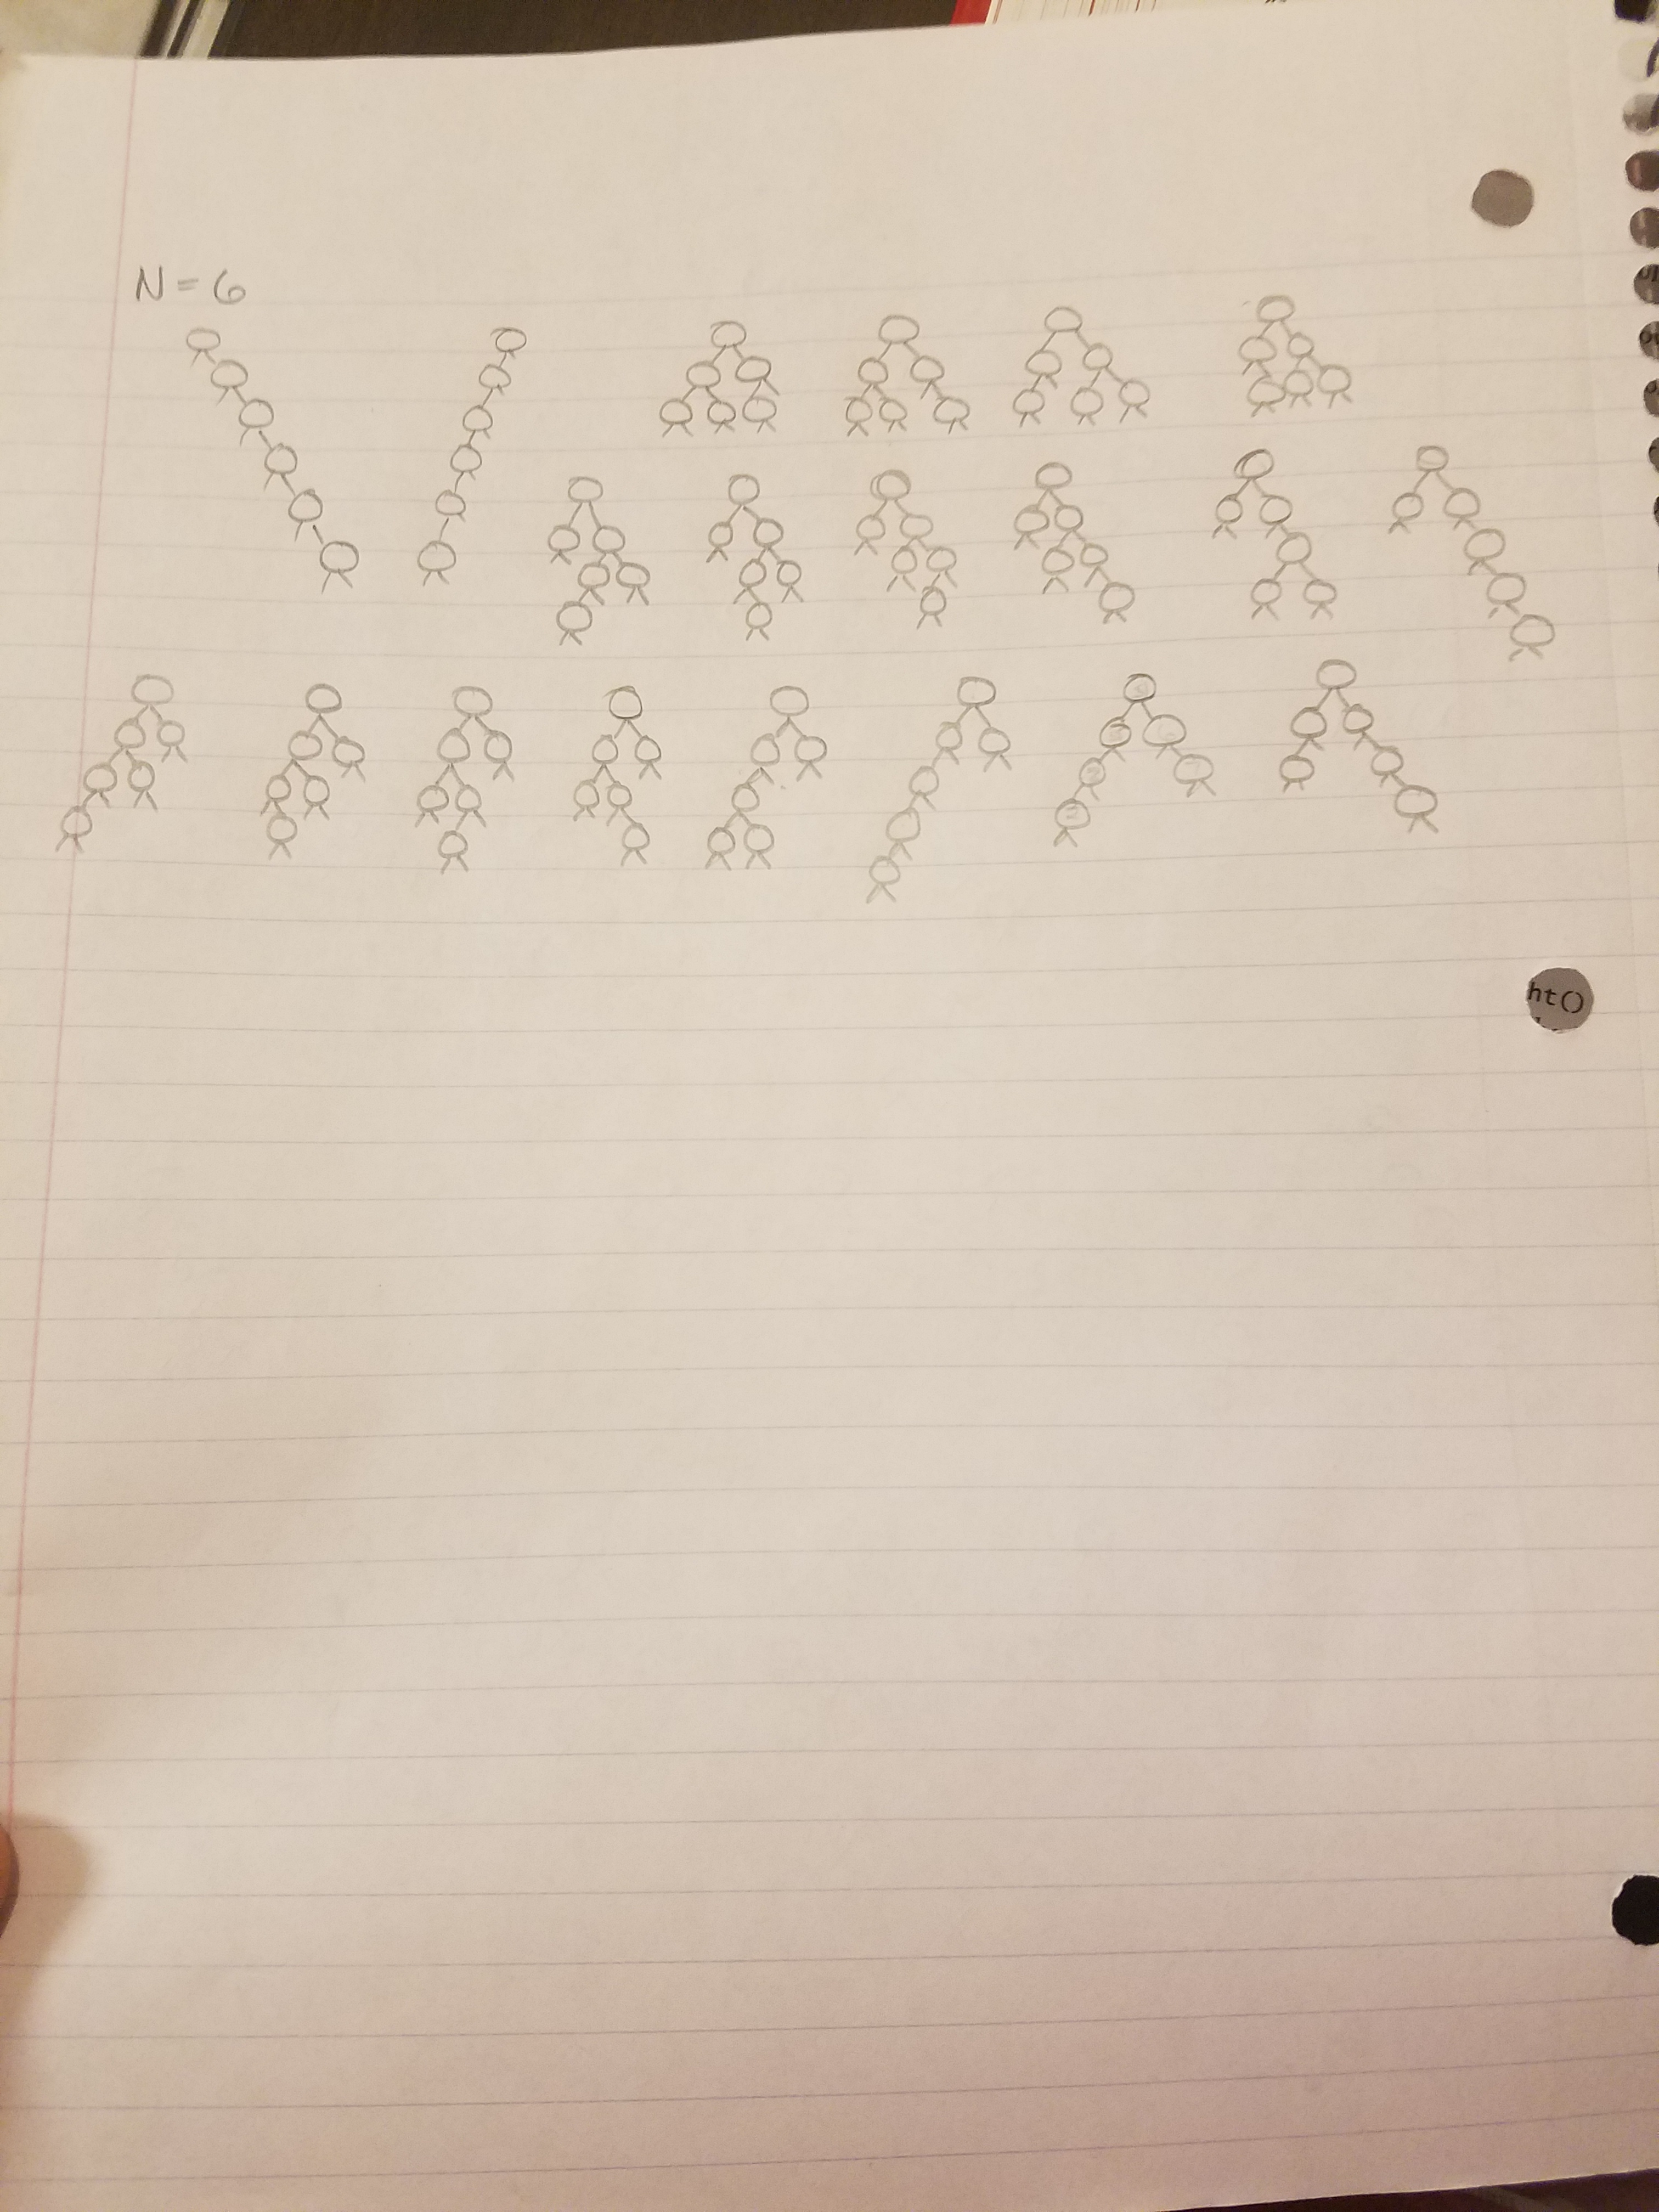 N = 6
ht()